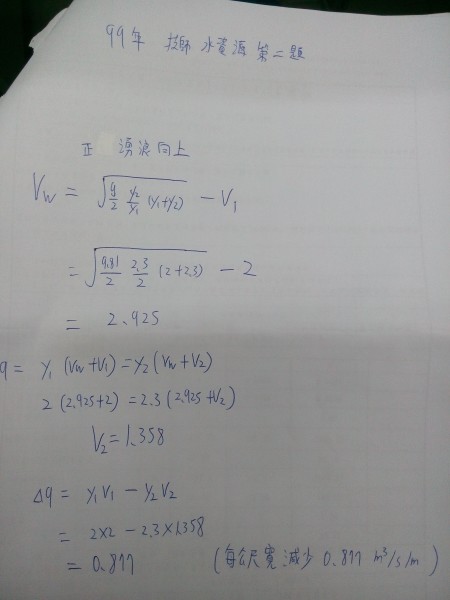 99年 技師 水資源 第二題
正 湧浪向上
Vw = √(g/2 y2/y1 (y1+y2)) - V1
= √(9.81/2 2.3/2 (2+2.3)) - 2
= 2.925
q = y1 (Vw+V1) = y2 (Vw+V2)
2 (2.925+2) = 2.3 (2.925+V2)
V2 = 1.358
Δq = y1V1 - y2V2
= 2×2 - 2.3×1.358
= 0.877 (每公尺寬減少 0.877 m³/s/m)